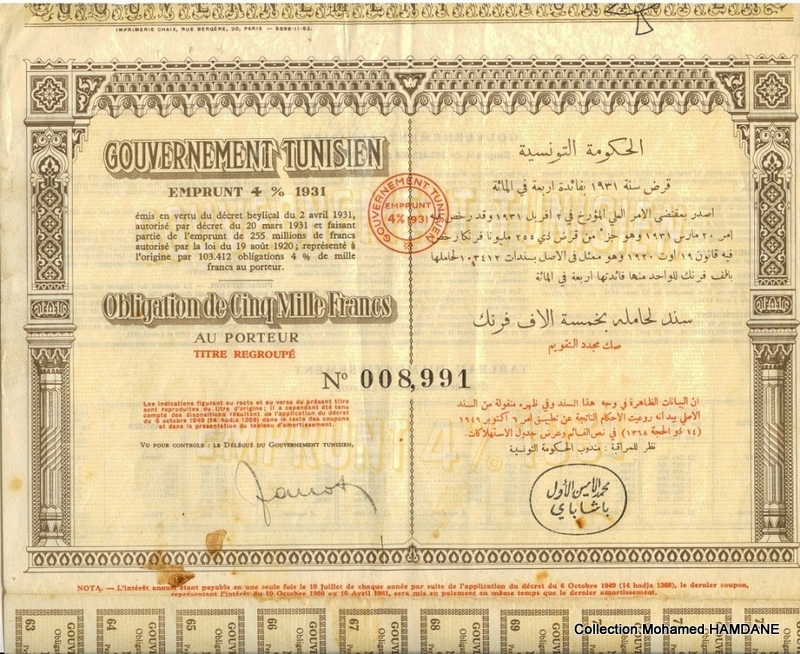 IMPRIMERIE CHAIX, RUE BERGÈRE, 20, PARIS — 5898-11-52.
GOUVERNEMENT TUNISIEN
EMPRUNT 4 % 1931
émis en vertu du décret beylical du 2 avril 1931,
autorisé par décret du 20 mars 1931 et faisant
partie de l'emprunt de 255 millions de francs
autorisé par la loi du 19 août 1920; représenté à
l'origine par 103.412 obligations 4 % de mille
francs au porteur.
Obligation de Cinq Mille Francs
AU PORTEUR
TITRE REGROUPÉ
GOUVERNEMENT TUNISIEN
EMPRUNT
4% 1931
الحكومة التونسية
قرض سنة ١٩٣١ بفائدة اربعة في المائة
اصدر بمقتضى الامر العلي المؤرخ في ٢ افريل ١٩٣١ وقد رخص فيه
امر ٢٠ مارس ١٩٣١ وهو جزء من قرض ذي ٢٥٥ مليونا فرنكا رخص
فيه قانون ١٩ اوت ١٩٢٠ وهو ممثل في الاصل بسندات ١٠٣٤١٢ لحاملها
بالف فرنك للواحد منها فائدتها اربعة في المائة
سند لحامله بخمسة الاف فرنك
صك مجدد التقويم
Nº 008,991
Les indications figurant au recto et au verso du présent titre
sont reproduites du titre d'origine; il a cependant été tenu
compte des dispositions résultant de l'application du décret
du 6 octobre 1949 (14 hodja 1368) dans le texte des coupons
et dans la présentation du tableau d'amortissement.
VU POUR CONTROLE : LE DÉLÉGUÉ DU GOUVERNEMENT TUNISIEN,
ان البيانات الظاهرة في وجه هذا السند وفي ظهره منقولة من السند
الاصلي بيد انه روعيت الاحكام الناتجة عن تطبيق امر ٦ اكتوبر ١٩٤٩
(١٤ ذو الحجة ١٣٦٨) في نص القسائم وعرض جدول الاستهلاكات
نظر للمراقبة : مندوب الحكومة التونسية
محمد الامين الاول
باشا باي
NOTA. — L'intérêt annuel étant payable en une seule fois le 19 Juillet de chaque année par suite de l'application du décret du 6 Octobre 1949 (14 hodja 1368), le dernier coupon,
représentant l'intérêt du 19 Octobre 1960 au 19 Avril 1961, sera mis en paiement en même temps que le dernier amortissement.
63
64
65
66
67
68
69
Collection:Mohamed HAMDANE